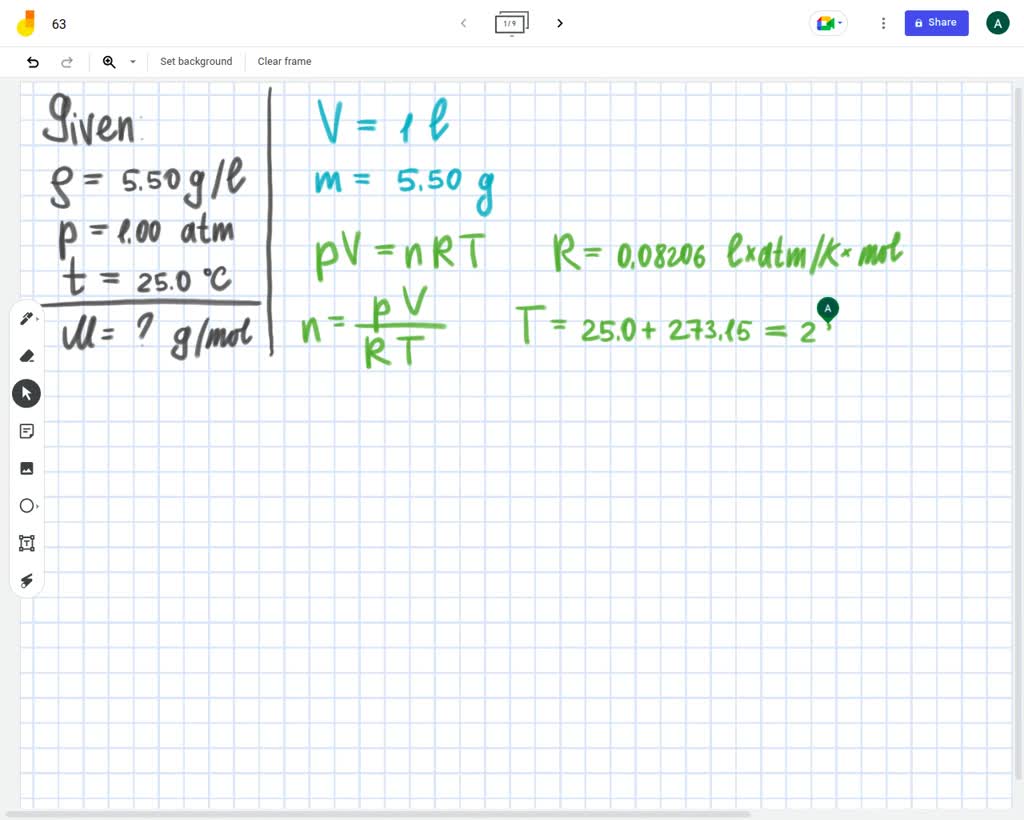 63
1/9
Share
A
Set background
Clear frame
Given:
ρ = 5.50 g/l
p = 1.00 atm
t = 25.0 °C
M = ? g/mol
V = 1 l
m = 5.50 g
pV = nRT
R = 0.08206 l×atm/K×mol
n = pV / RT
T = 25.0 + 273.15 = 2
A